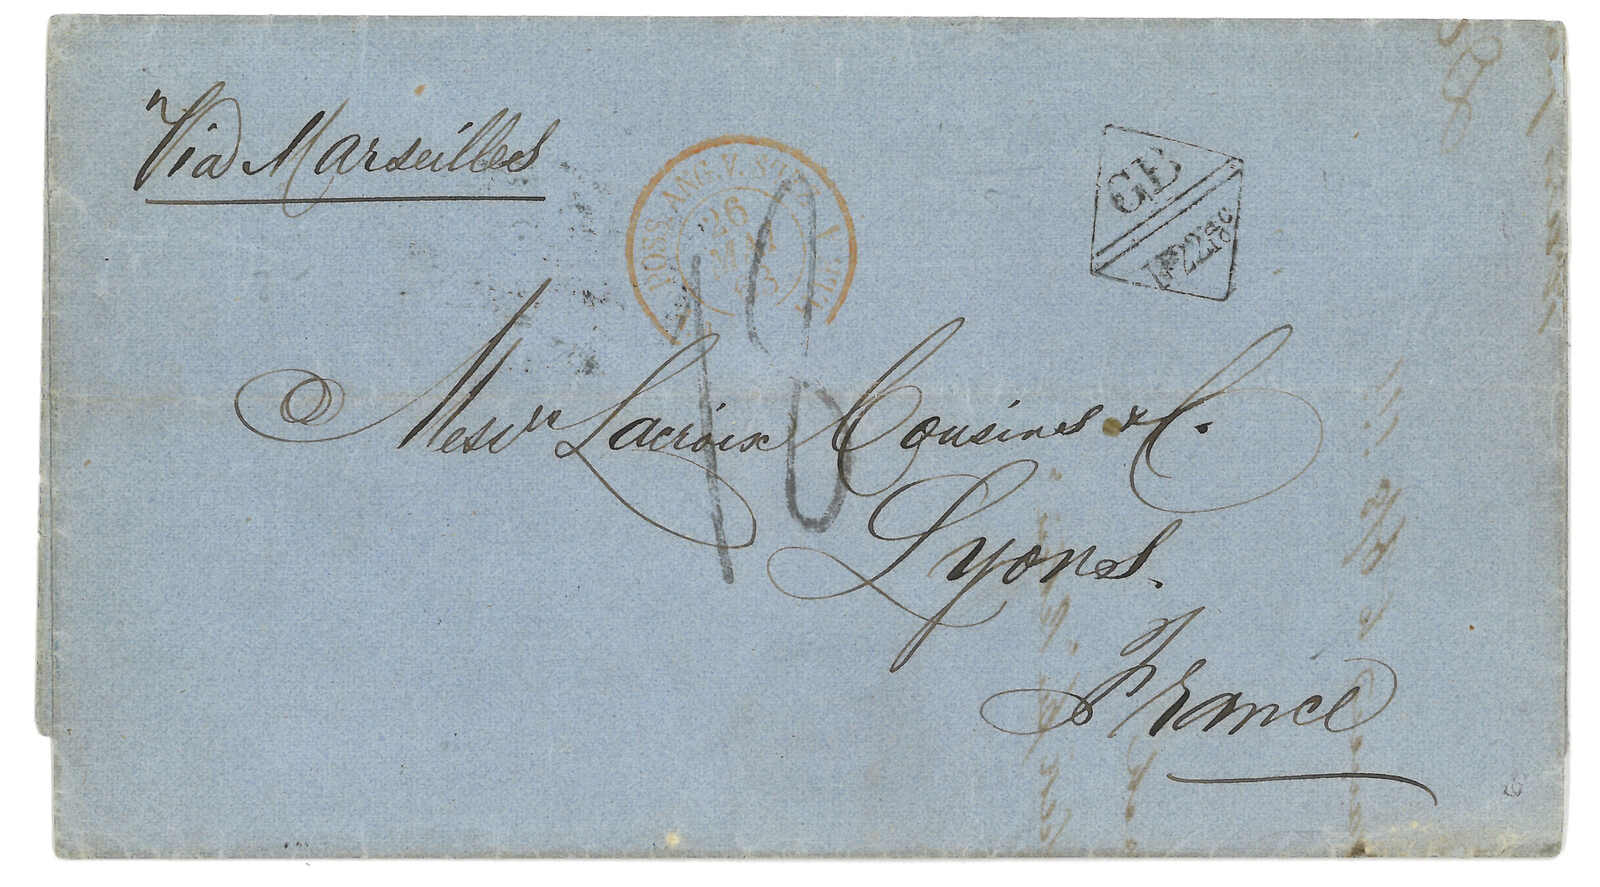 Via Marseilles
POSS. ANG. V. SUEZ
26
MAI
GB
1F22 8/10c
18
Mess.rs Lacroix Cousines & C.
Lyons.
France